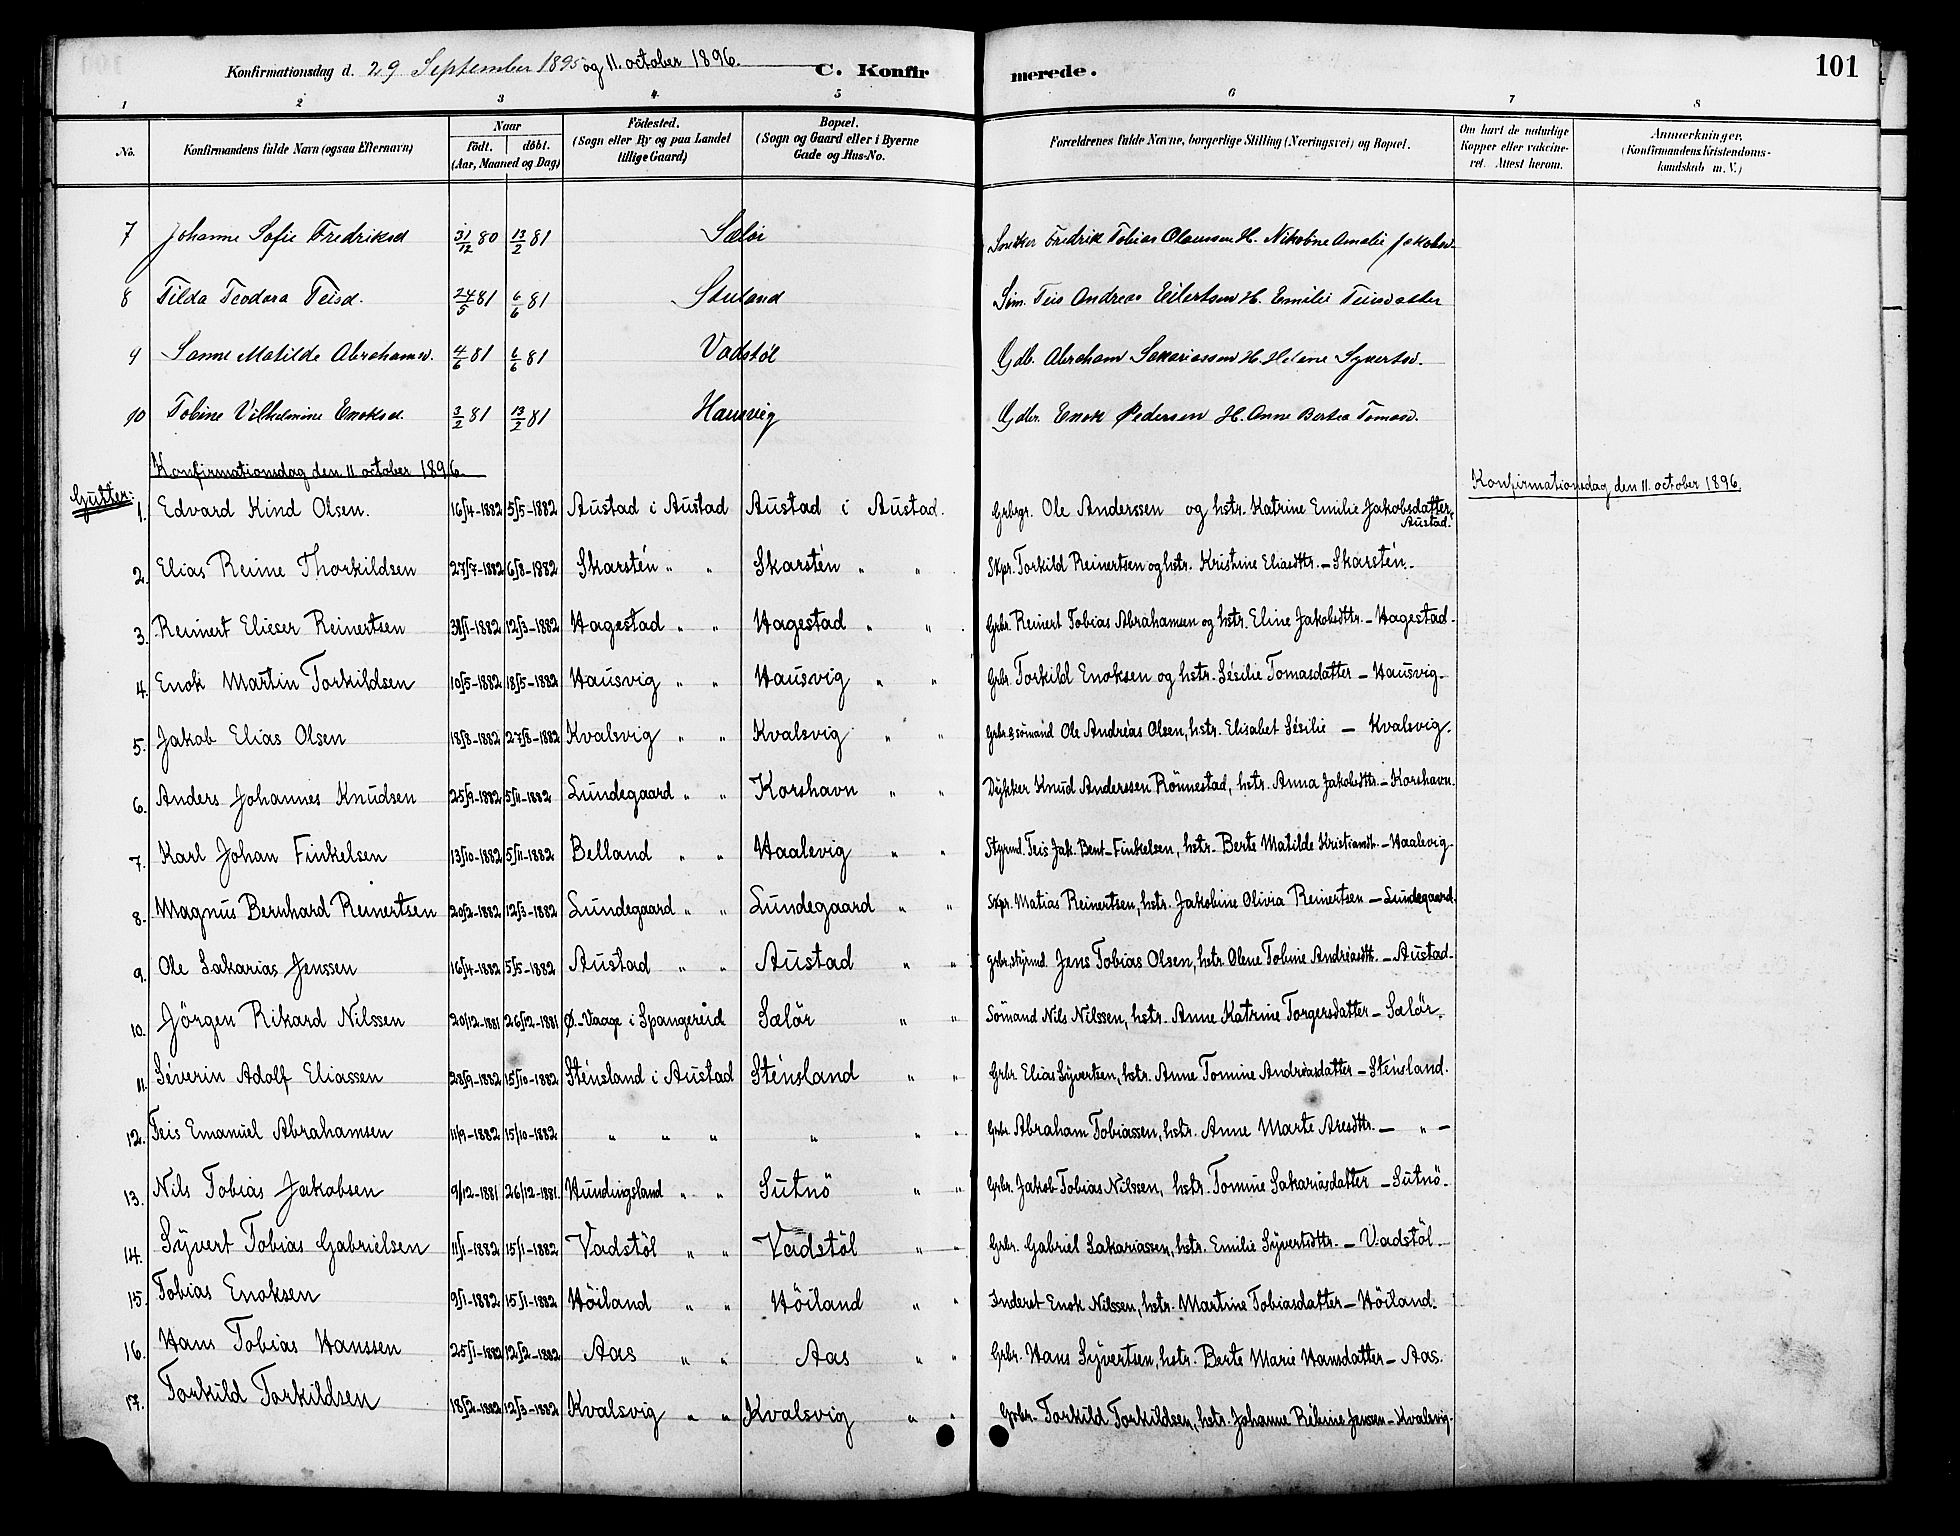 Konfirmationsdag d. 29 September 1895 og 11. october 1896. C. Konfir merede. 101
1 2 3 4 5 6 7 8
No. Konfirmandens fulde Navn (ogsaa Efternavn) Naar födt. döbt. (Aar, Maaned og Dag) Födested. (Sogn eller By og paa Landet tillige Gaard) Bopæl. (Sogn og Gaard eller i Byerne Gade og Hus-No. Forældrenes fulde Navne, borgerlige Stilling (Næringsvei) og Bopæl. Om havt de naturlige Kopper eller vakcineret. Attest herom. Anmærkninger. (Konfirmandens Kristendomskundskab m. V.)
7 Johanne Sofie Fredriksd 31/12 80 13/2 81 Sælör Fredrik Tobias Olaussen H. Amalie Jakobsd
8 Tilda Teodora Teisd. 24/5 81 6/6 81 Stuland Söm. Teis Andreas Eilertsen H. Emilie Teisdatter
9 Sanne Matilde Abrahamsd. 4/6 81 6/6 81 Vadstöl Gdb. Abraham Sakariassen H. Helene Syvertsd.
10 Tobine Vilhelmine Enoksd. 3/2 81 13/2 81 Hausvig Gdbr. Enok Pedersen H. Anne Bertea Tomasd.
Konfirmationsdag den 11 october 1896. Konfirmationsdag den 11. october 1896.
Gutter:
1. Edvard Kind Olsen. 16/4-1882 5/5-1882 Austad i Austad Austad i Austad. Grbrgr. Ole Anderssen og hstr. Katrine Emilie Jakobsdatter, Austad.
2. Elias Reine Thorkildsen 27/7-1882 6/8-1882 Skarstén " " Skarstén " " Skpr. Torkild Reinertsen og hstr. Kristine Eliasdttr. - Skarstén.
3. Reinert Elieser Reinertsen 12/3-1882 Hagestad " " Hagestad " " Grbr. Reinert Tobias Abrahamsen og hstr. Eline Jakobsdttr. - Hagestad.
4. Enok Martin Torkildsen 10/5-1882 18/5-1882 Hausvig " " Hausvig " " Grbr. Torkild Enoksen og hstr. Sésilie Tomasdatter - Hausvig.
5. Jakob Elias Olsen 18/8-1882 27/8-1882 Kvalsvig " " Kvalsvig " " Grbr. & sömand Ole Andréas Olsen, hstr. Elisabet Sésilie - Kvalsvig.
6. Anders Johannes Knudsen 25/9-1882 5/11-1882 Lundegaard " " Korshavn " " Dykker Knud Anderssen Rönnestad, hstr. Anna Jakobsdttr. - Korshavn.
7. Karl Johan Finkelsen 13/10-1882 5/11-1882 Belland " " Haalevig " " Styrmd. Teis Jak. Bent-Finkelsen, hstr. Berte Matilde Kristiansdtr. - Haalevig.
8. Magnus Bernhard Reinertsen 20/2-1882 12/3-1882 Lundegaard " " Lundegaard " " Skpr. Matias Reinertsen, hstr. Jakobine Olivia Reinertsen - Lundegaard.
9. Ole Sakarias Jenssen 16/4-1882 5/5-1882 Austad " " Austad " " grbr. styrmd. Jens Tobias Olsen, hstr. Olene Tobine Andréasdtr. - Austad.
10. Jörgen Rikard Nilssen 20/12-1881 26/12-1881 Ø-Vaage i Spangereid Sælör " " Sömand Nils Nilssen, hstr. Anne Katrine Torgersdatter - Sælör.
11. Séverin Adolf Eliassen 28/9-1882 15/10-1882 Sténsland i Austad Sténsland " " Grbr. Elias Syvertsen, hstr. Anne Tomine Andréasdatter - Sténsland.
12. Teis Emanuel Abrahamsen 11/9-1882 15/10-1882 " " " " " " Grbr. Abraham Tobiassen, hstr. Anne Marte Aresdttr. - " -
13. Nils Tobias Jakobsen 9/12-1881 26/12-1881. Hundingsland " " Sutnö " " Grbr. Jakob Tobias Nilssen, hstr. Tomine Sakariasdatter - Sutnö.
14. Syvert Tobias Gabrielsen 11/1-1882 15/1-1882 Vadstöl " " Vadstöl " " Grbr. Gabriel Sakariassen, hstr. Emilie Syvertsdttr. - Vadstöl.
15. Tobias Enoksen 9/1-1882 15/1-1882 Höiland " " Höiland " " Inderst Enok Nilssen, hstr. Martine Tobiasdatter - Höiland.
16. Hans Tobias Hanssen 25/1-1882 12/2-1882 Aas " " Aas " " Grbr. Hans Syvertsen, hstr. Berte Marie Hansdatter - Aas.
17. Torkild Torkildsen 18/2-1882 12/3-1882 Kvalsvig " " Kvalsvig " " Grbr. Torkild Torkildsen, hstr. Johanne Jenssen - Kvalsvig.